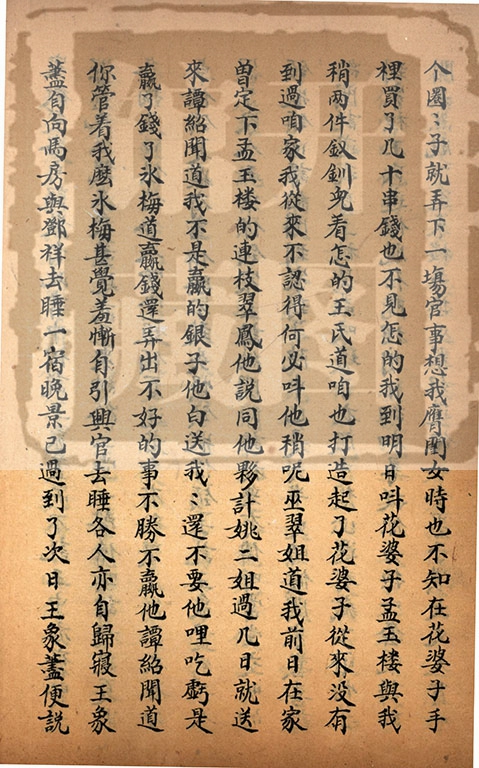 个圈〻子就弄下一塲官事想我膺閨女時也不知在花婆子手
裡買了几十串錢也不見怎的我到明日呌花婆子孟玉楼與我
稍两件釵釧兜看怎的王氏道咱也打造起了花婆子從來没有
到過咱家我從來不認得何必呌他稍呢巫翠姐道我前日在家
曾定下孟玉楼的連枝翠鳳他説同他夥計姚二姐過几日就送
來譚紹聞道我不是贏的銀子他白送我〻還不要他哩吃虧是
贏了錢了氷梅道贏錢還弄出不好的事不勝不贏他譚紹聞道
你管着我麽氷梅甚覺羞慚自引興官去睡各人亦自歸寢王象
藎自向馬房與鄧祥去睡一宿晚景已過到了次日王象藎便説